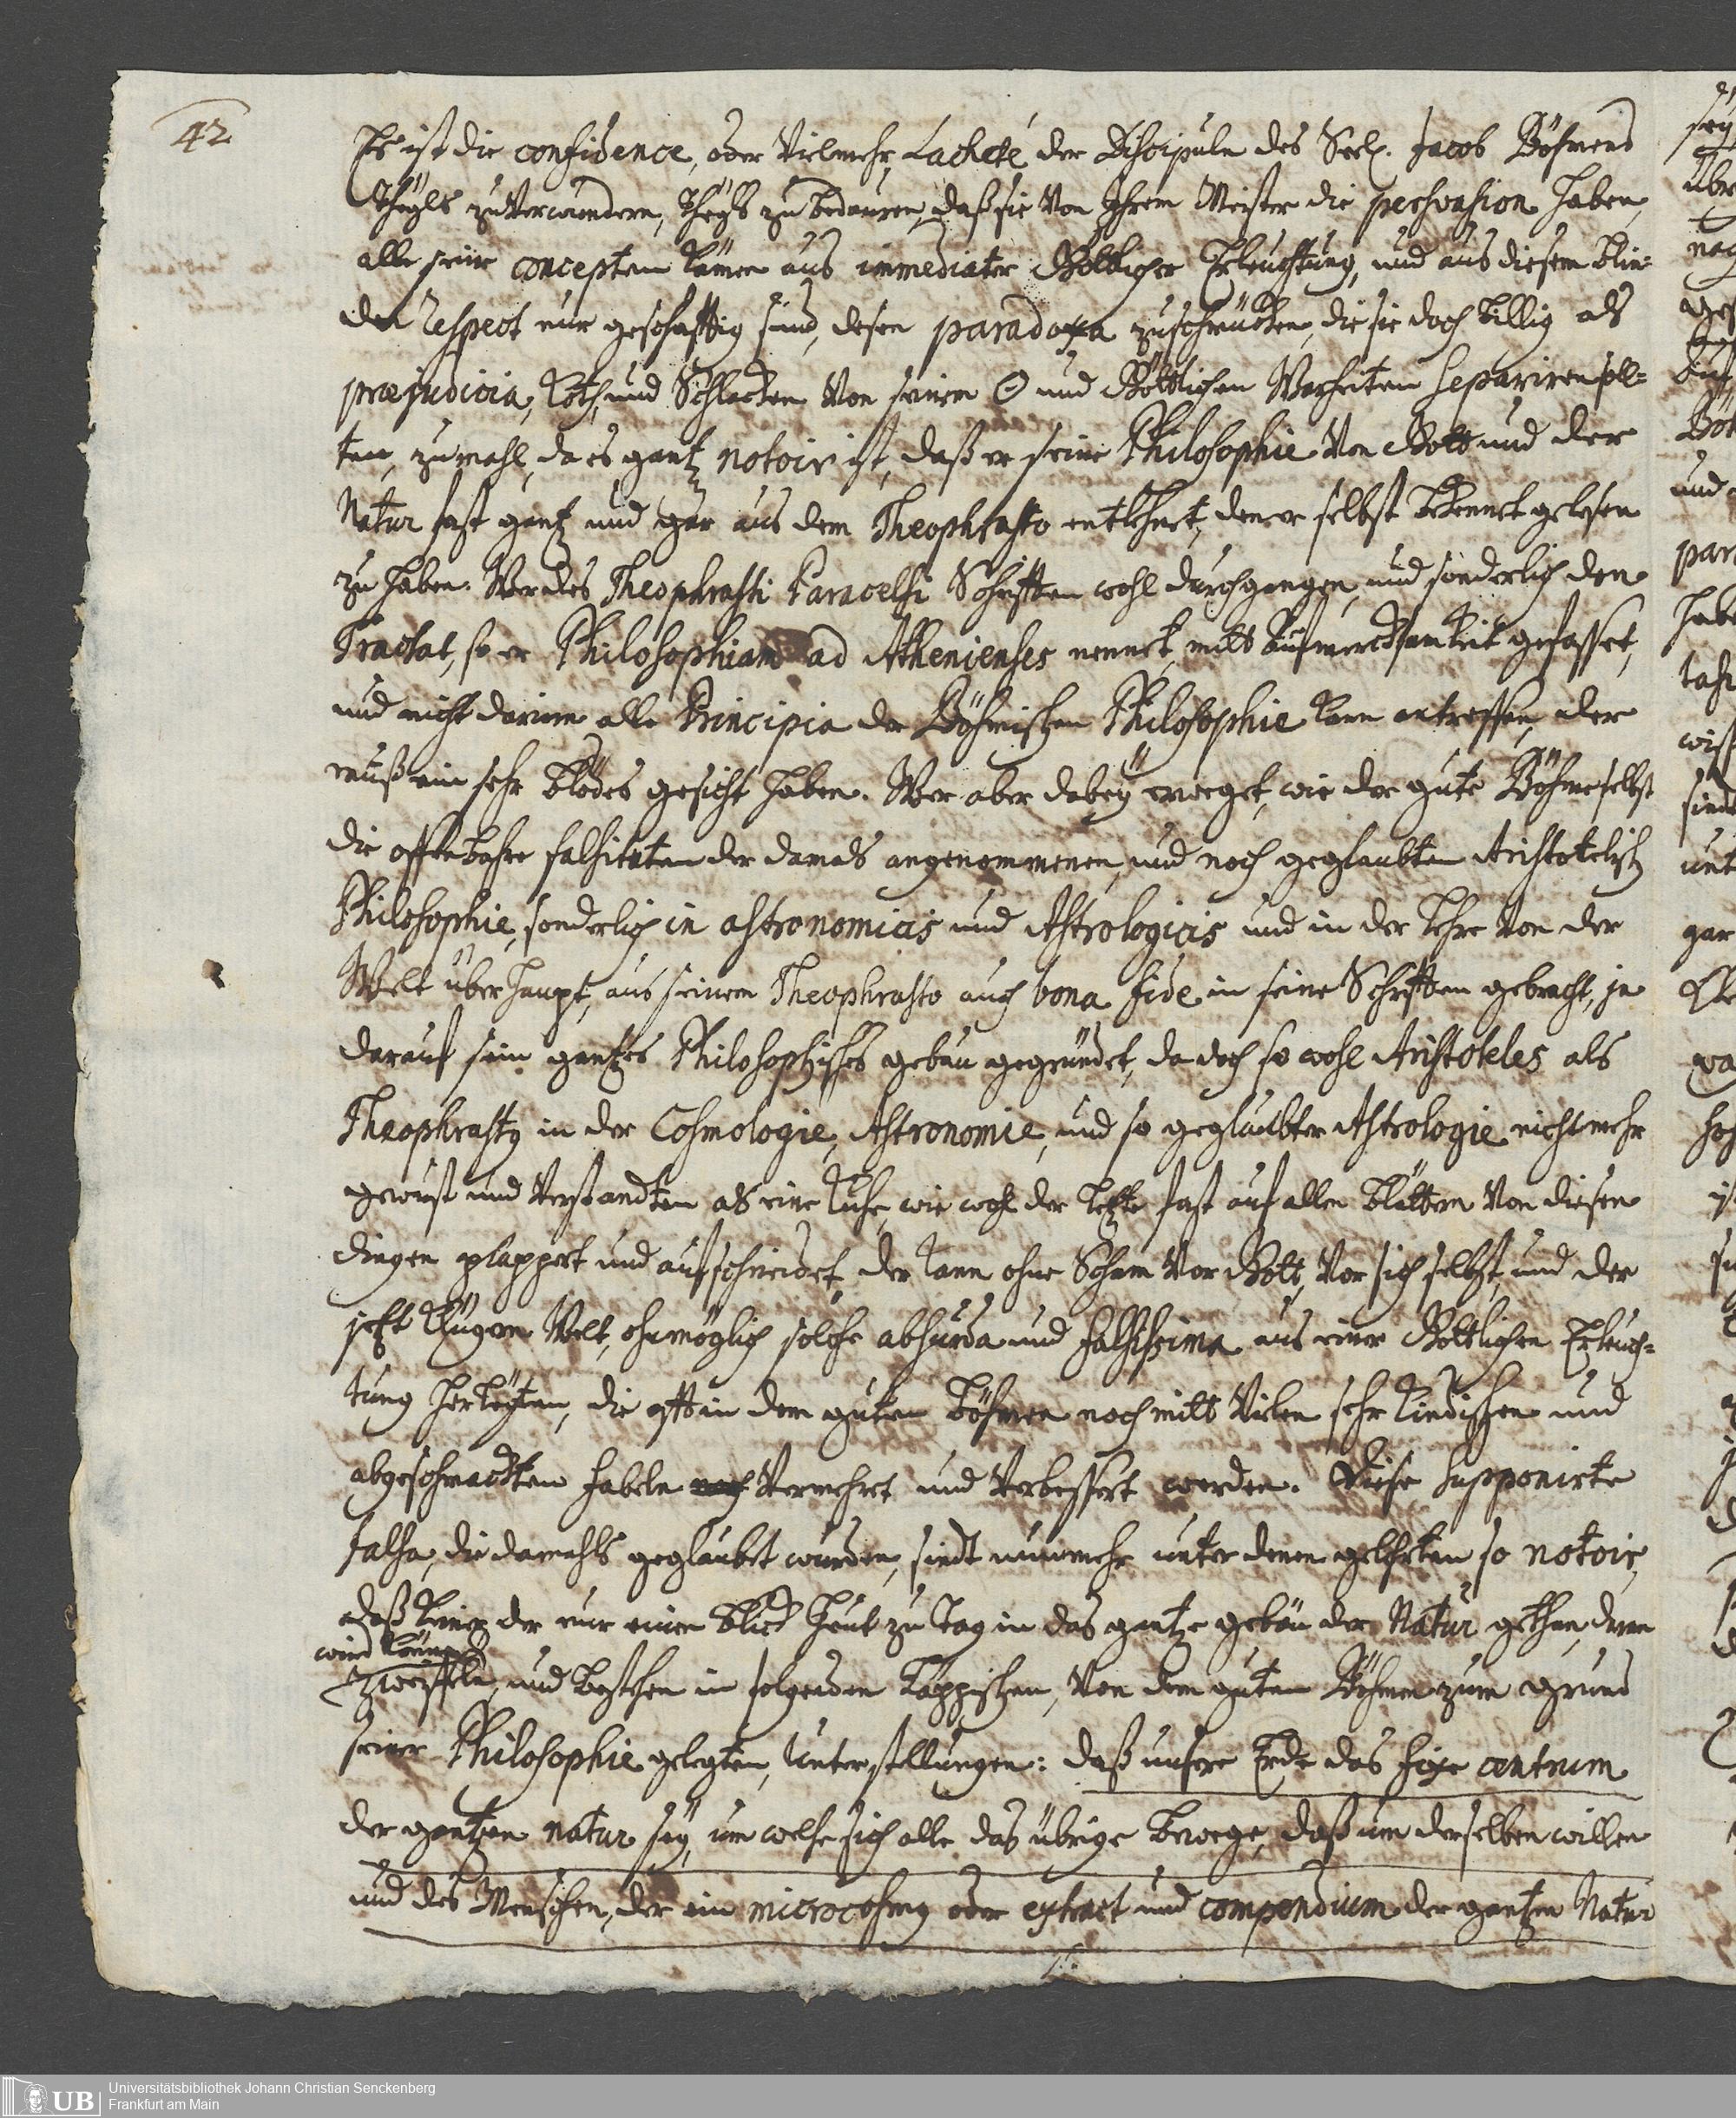 42
Es ist die confidence, oder Vielmehr Lacheté der Discipuln des Seel. Jacob Böhmens
theils zu verwundern, theils zu bedauren, daß sie von Ihrem Meister die persvasion haben,
alle seine concepten kämen aus immediater Göttlicher Erleuchtung, und aus diesem blin-
den respect nur geschäfftig sind, desen paradoxa zuschmücken, die sie doch billig als
præjudicia, Koth, und Schlacken von seinem ☉ und Göttlichen Warheiten separiren soll-
ten, zumahl, da es gantz notoir ist, daß er seine Philosophie von Gott und der
Natur fast gantz und gar aus dem Theophrasto entlehnet, den er selbst bekennet gelesen
zu haben. Wer des Theophrasti Paracelsi Schrifften wohl durchgangen, und sonderlich den
Tractat, so er Philosophiam ad Athenienses nennet, mitt aufmercksamkeit gefasset,
und nicht darinn alle Principia der Böhmischen Philosophie kann antreffen, der
muß ein sehr blödes gesicht haben. Wer aber dabeÿ erweget, wie der gute Böhme selbst
die offenbahre falsitäten der damals angenommenen, und noch geglaubten Aristotelisch
Philosophie, sonderlich in astronomicis und Astrologicis und in der Lehre von der
Welt überhaupt, aus seinem Theophrasto auch bona fide in seine Schrifften gebracht, ja
darauf sein gantzes Philosophisches gebäu gegründet, da doch so wohl Aristoteles als
Theophrastus in der Cosmologie, Astronomie, und so geglaubter Astrologie nicht mehr
gewust und verstandten als eine Kuhe, wie wohl der letzte fast auf allen blättern von diesen
dingen plappert und aufschneidet, der kann ohne Scham vor Gott, vor sich selbst, und der
jetzt klügern Welt, ohnmöglich solche absurda und falsissima aus einer Göttlichen Erleuch-
tung herleiten, die offt in dem guten Böhmen noch mitt vielen sehr kindischen und
abgeschmackten fabeln vermehret und verbessert werden. Diese supponirte
falsa, die damahls geglaubet wurden, sindt nunmehr unter denen gelehrten so notoir,
daß keiner der nur einen blick heut zu Tag in das gantze gebäu der Natur gethan, dran
wird können
zweiffeln, und bestehen in folgenden läppischen, von dem guten Böhmen zum grund
seiner Philosophie gelegten, unterstellungen: daß unsere Erde das fixe centrum
der gantzen natur seÿ, um welche sich alle das übrige bewege, daß um derselben willen
und des Menschen, der ein microcosmus oder extract und compendium der gantzen Natur
UB
Universitätsbibliothek Johann Christian Senckenberg
Frankfurt am Main